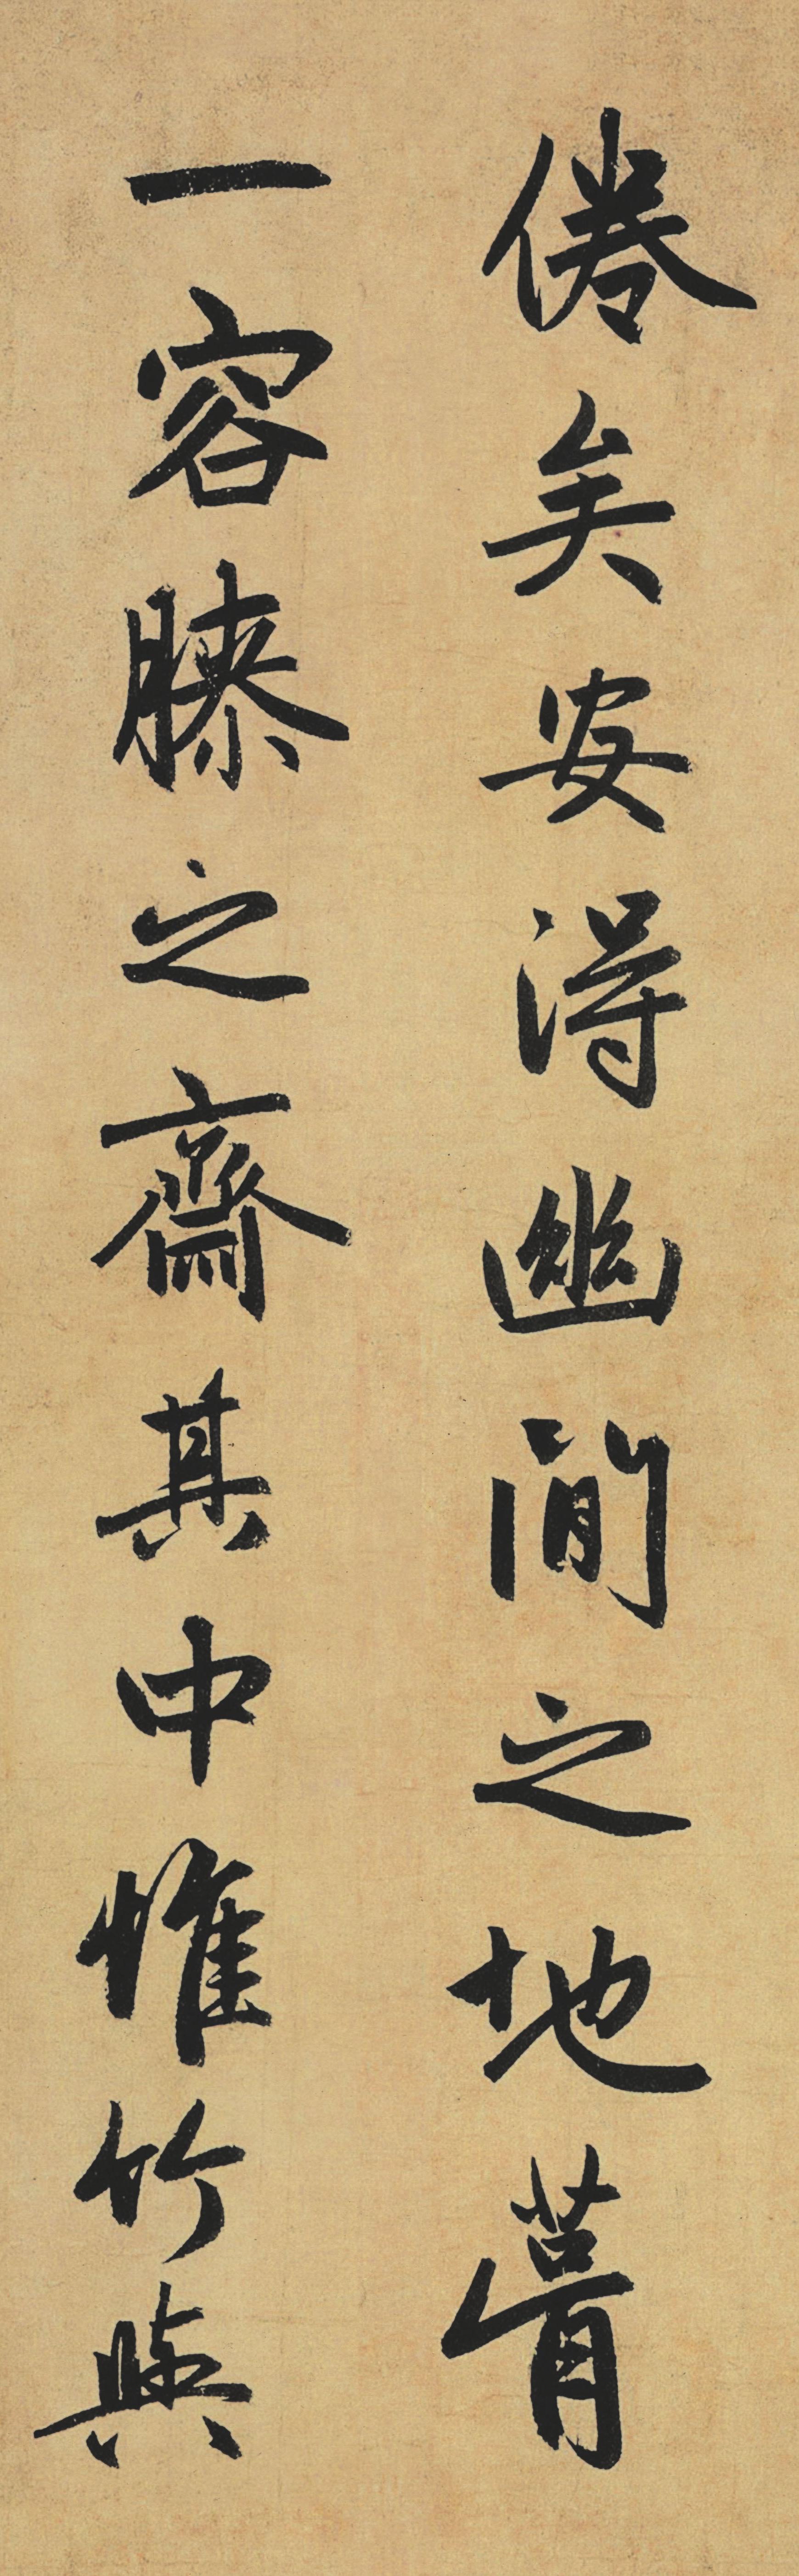 倦矣安得幽閒之地葺
一容膝之齋其中惟竹與